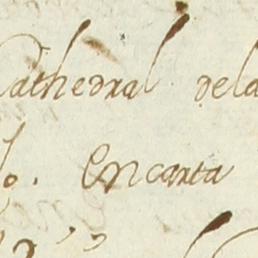 Cathedral dela
Encarta